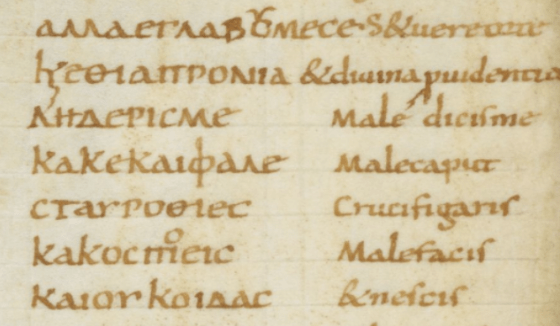 ΑΛΛΑΕΓΛΑΒȣΜΕϹΕ · S&uereorte
ϗΕΘΙΑΠΡΟΝΙΑ &diuina puidentia
ΛΗΔΕΡΙϹΜΕ Male dicisme
ΚΑΚΕΚΑΙΦΑΛΕ Malecaput
ϹΤΑΥΡΟΘΙΕϹ Crucifigaris
ΚΑΚΟϹΠΟΕΙϹ Malefacis
ΚΑΙΟΥΚΟΙΔΑϹ &nescis